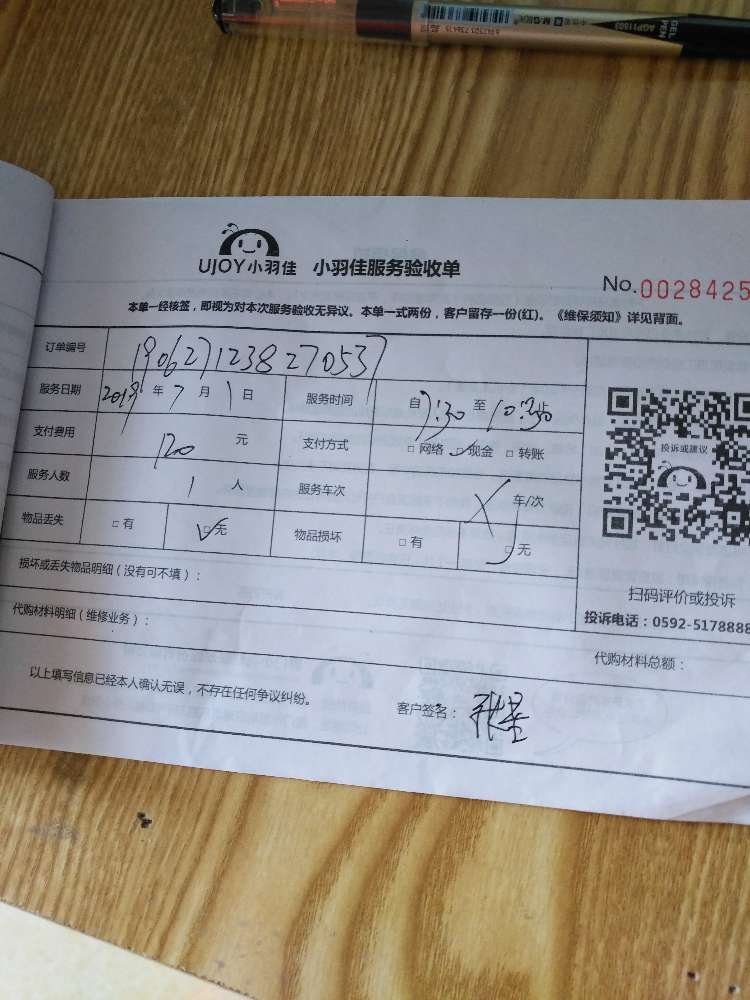 GEL PEN
AGP11503
UJOY小羽佳 小羽佳服务验收单
No.0028425
本单一经核签，即视为对本次服务验收无异议。本单一式两份，客户留存一份(红)。《维保须知》详见背面。
订单编号 190627123827053
服务日期 2019年7月1日 服务时间 自7:30至10:30止
支付费用 120元 支付方式 □网络 ☑现金 □转账
投诉或建议
服务人数 1人 服务车次 车/次
物品丢失 □有 ☑无 物品损坏 □有 ☑无
损坏或丢失物品明细（没有可不填）：
扫码评价或投诉
投诉电话：0592-5178888
代购材料明细（维修业务）：
代购材料总额：
以上填写信息已经本人确认无误，不存在任何争议纠纷。
客户签名：